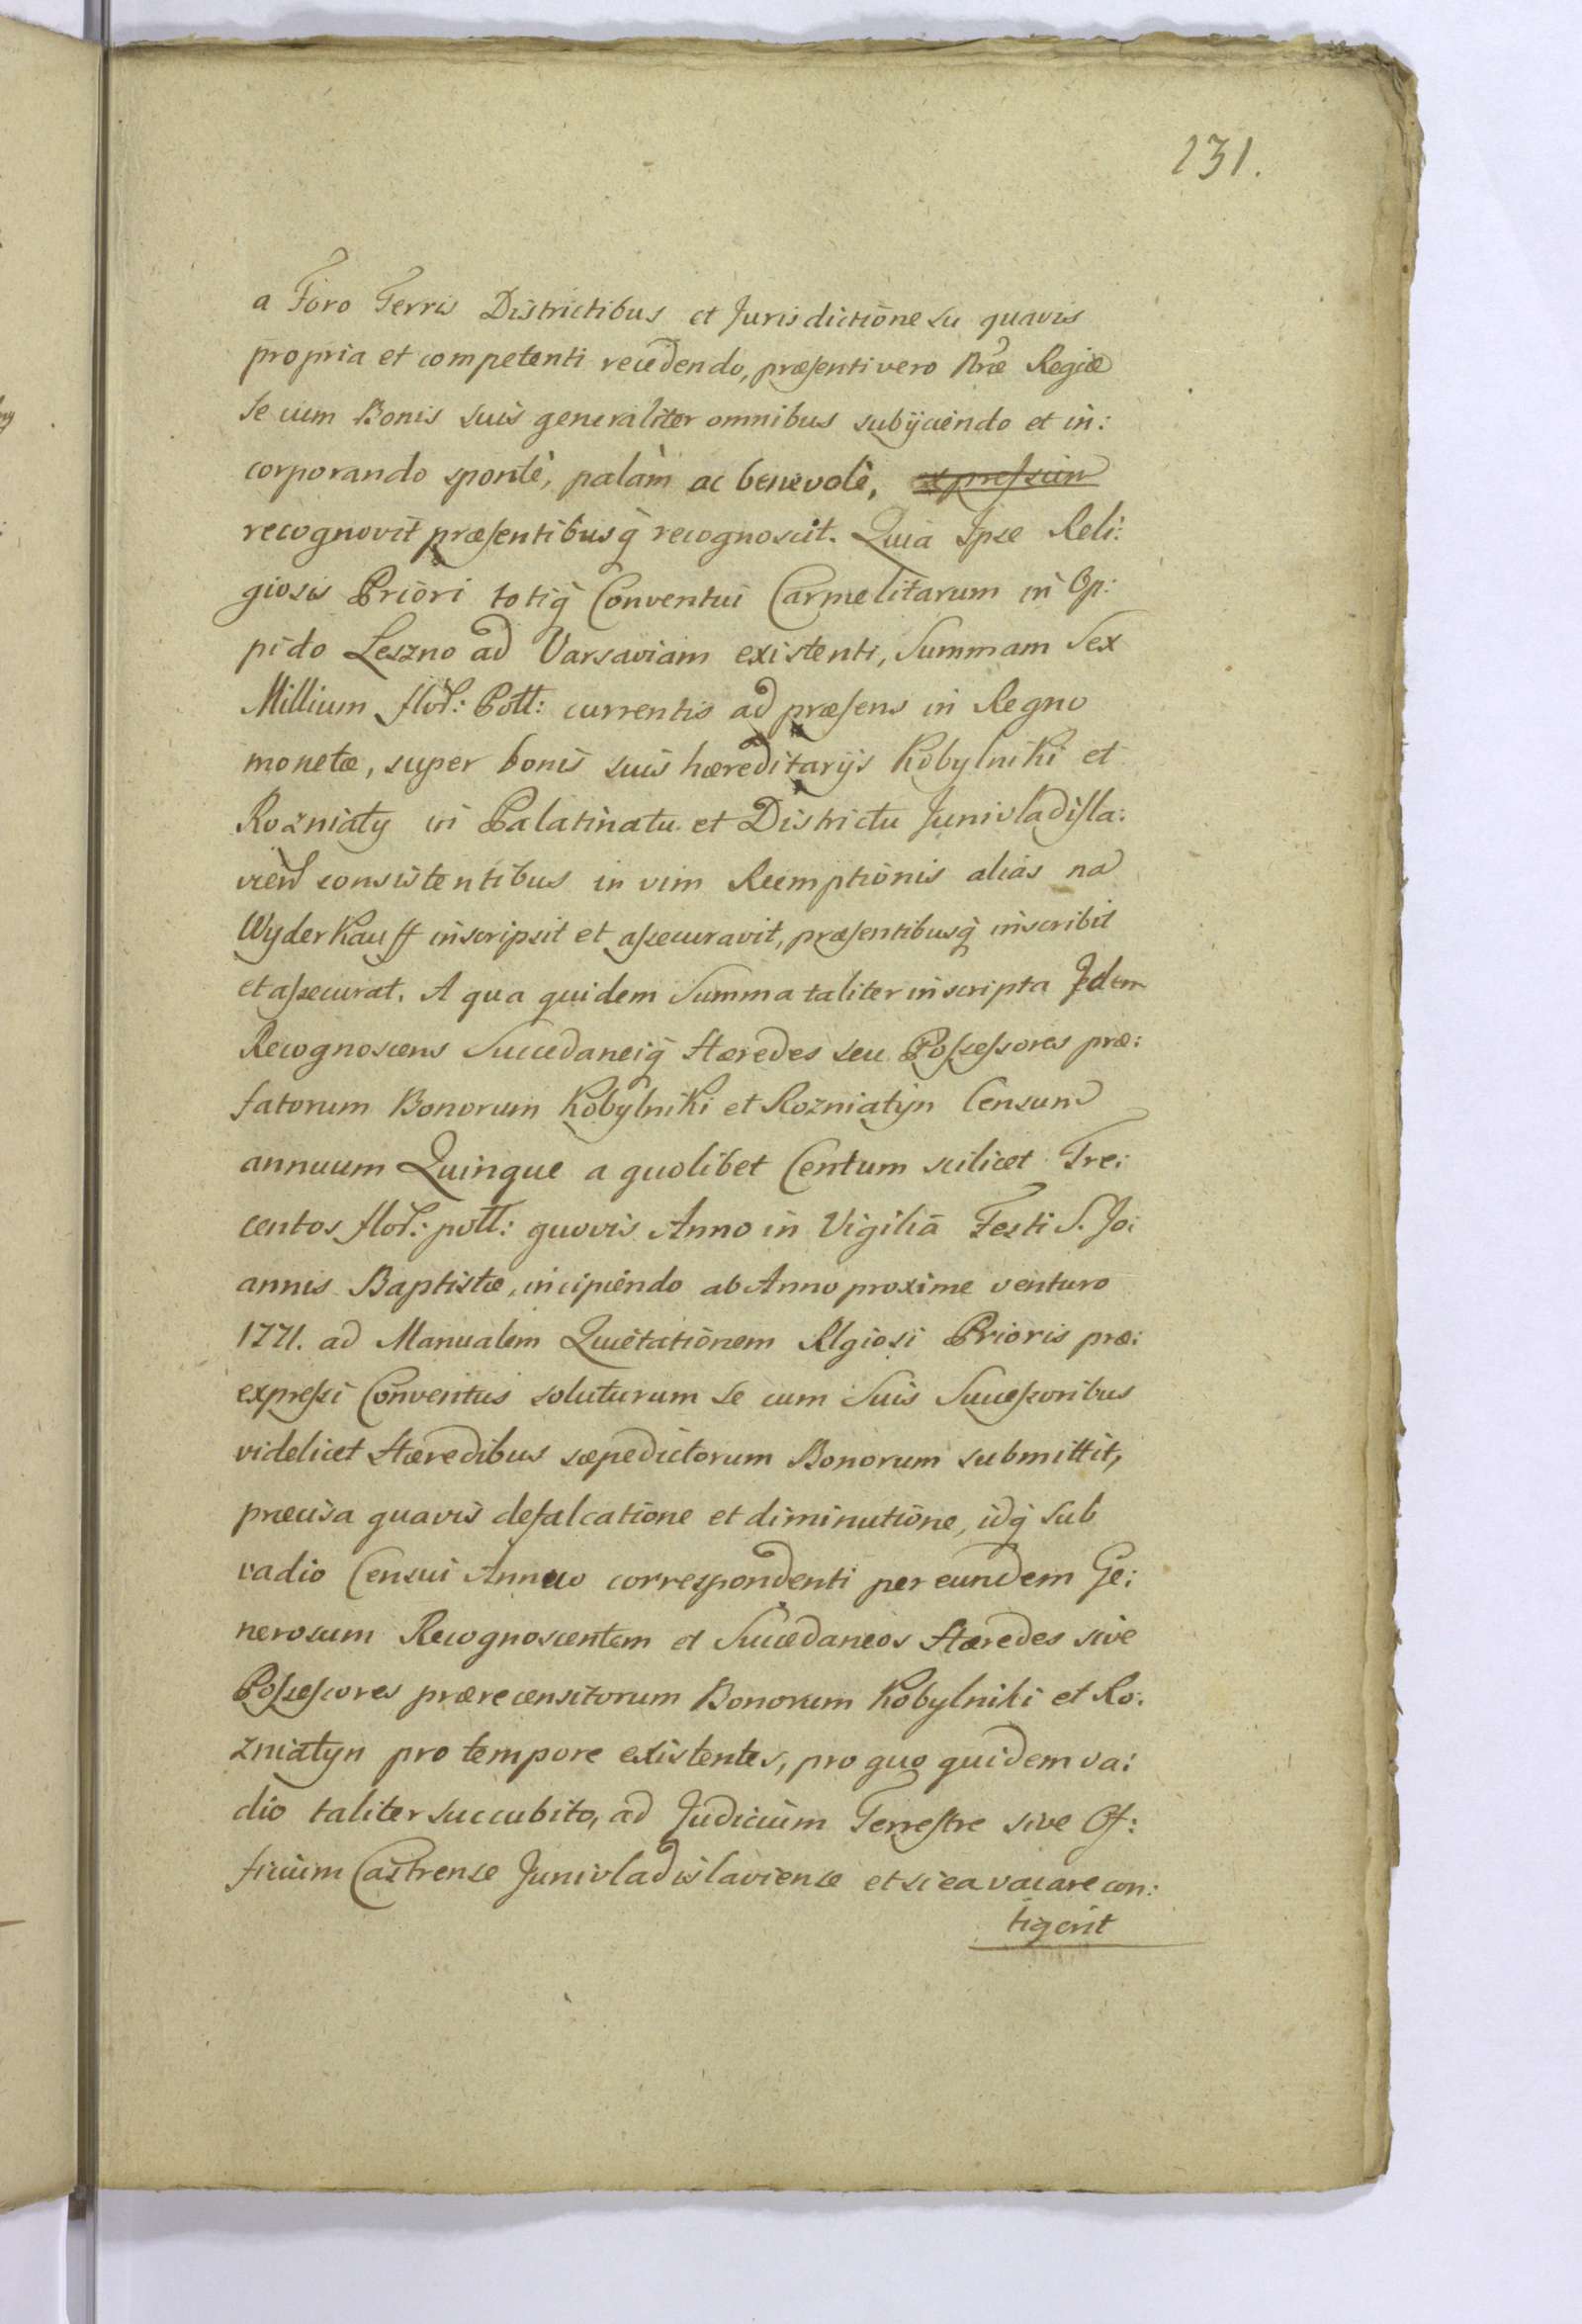 231.
a Foro Terris Districtibus et Jurisdictione su quavis
propria et competenti recedendo, præsenti vero Nræ Regiæ
se cum Bonis suis generaliter omnibus subijciendo et in:
corporando spontè, palàm ac benevolè,
recognovit præsentibusq̀ recognoscit. Quia Ipse Reli:
giosis Priori totiq̀ Conventui Carmelitarum in Op:
pido Leszno ad Varsaviam existenti, Summam Sex
Millium flor: Poll: currentis ad præsens in Regno
monetæ, super bonis suis hæreditarijs Kobylniki et
Rozniaty in Palatinatu et Districtu Junivladisla:
vien consistentibus in vim Reemptionis alias na
Wyderkauff inscripsit et assecuravit, præsentibusq̀ inscribit
et assecurat. A qua quidem Summa taliter inscripta Idem
Recognoscens Succedaneiq̀ Hæredes seu Possessores præ:
fatorum Bonorum Kobylniki et Rozniatyn Censum
annuum Quinque a quolibet Centum scilicet Tre:
centos flor: poll: quovis Anno in Vigiliā Festi S. Jo:
annis Baptistæ, incipiendo ab Anno proxime venturo
1771. ad Manualem Quietationem Rlgiosi Prioris præ:
expressi Conventus soluturum se cum Suis Successoribus
videlicet Hæredibus sæpedictorum Bonorum submittit,
præcisa quavis defalcatione et diminutione, idq̀ sub
vadio Censui Annuo correspondenti per eundem Ge:
nerosum Recognoscentem et Succedaneos Hæredes sive
Possessores prærecensitorum Bonorum Kobylniki et Ro:
zniatyn pro tempore existentes, pro quo quidem va:
dio taliter succubito, ad Judicium Terrestre sive Of:
ficium Castrense Junivladislaviense et si ea vacare con:
tigerit